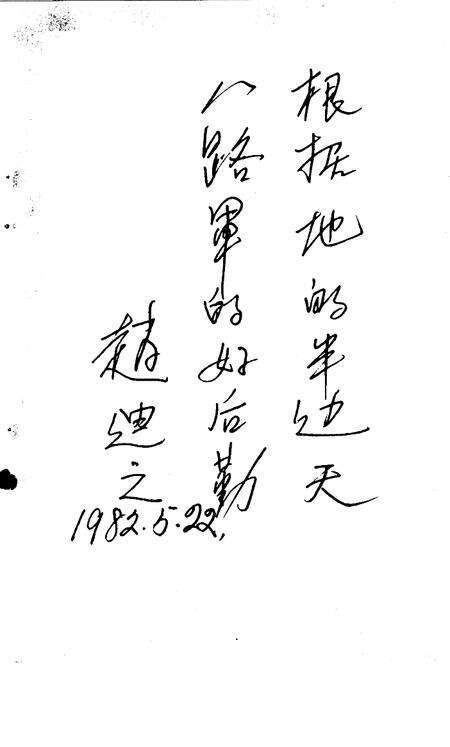 根据地的半边天
八路軍的好后勤
趙迪之
1982.5.22.